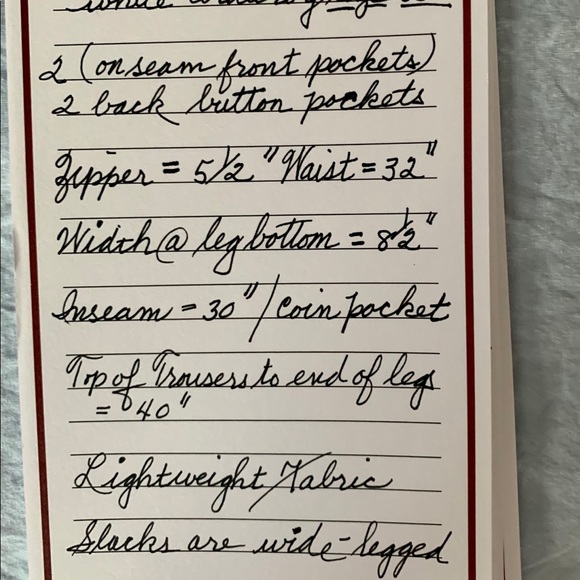 2 (on seam front pockets)
2 back button pockets
Zipper = 5 1/2" Waist = 32"
Width @ leg bottom = 8 1/2"
Inseam = 30" / Coin pocket
Top of Trousers to end of legs
= 40"
Lightweight / Fabric
Slacks are wide-legged